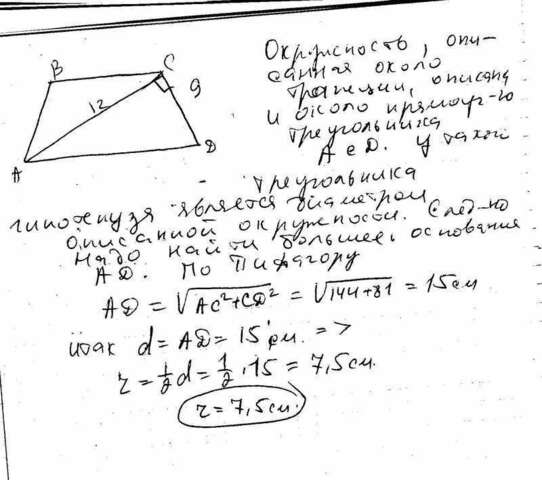 Окружность, опи-
B
C
санная около
трапеции, описана
9
12
и около прямоуг-го
треугольника
A
D
ACD. У такого
треугольника
гипотенуза является диаметром
описанной окружности. След-но
надо найти большее основание
AD. По Пифагору
AD = √AC²+CD² = √144+81 = 15см
итак d = AD = 15 см. =>
r = 1/2 d = 1/2 · 15 = 7,5см.
r = 7,5см.